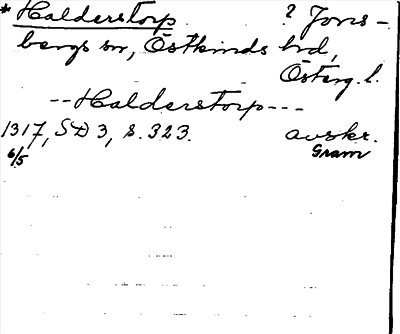 * Halderstorp ? Jons-
bergs sn, Östkinds hd,
Österg. l.
--Halderstorp---
1317, SD 3, s. 323. avskr.
6/5 Gram